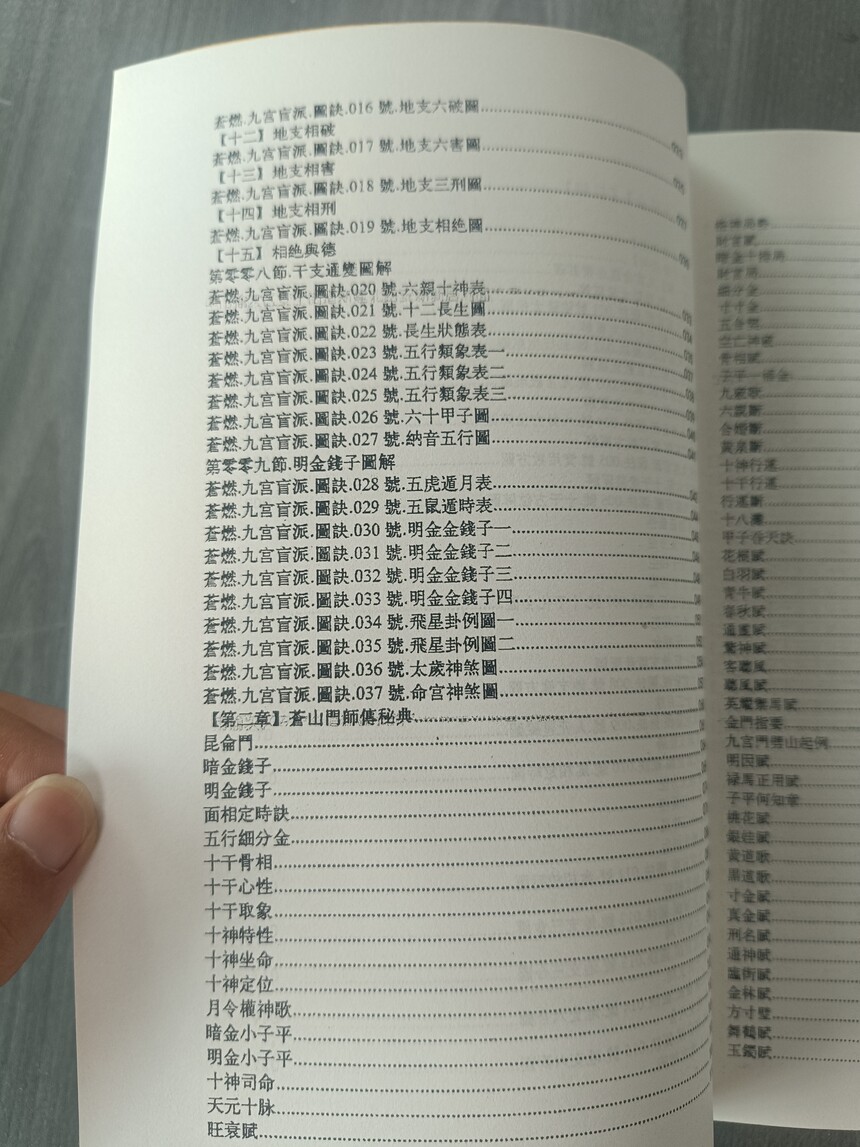 蒼燃.九宮盲派.圖訣.016 號.地支六破圖
【十二】地支相破
蒼燃.九宮盲派.圖訣.017 號.地支六害圖
【十三】地支相害
蒼燃.九宮盲派.圖訣.018 號.地支三刑圖
【十四】地支相刑
蒼燃.九宮盲派.圖訣.019 號.地支相絶圖
【十五】相絶與德
第零零八節.干支通變圖解
蒼燃.九宮盲派.圖訣.020 號.六親十神表
蒼燃.九宮盲派.圖訣.021 號.十二長生圖
蒼燃.九宮盲派.圖訣.022 號.長生狀態表
蒼燃.九宮盲派.圖訣.023 號.五行類象表一
蒼燃.九宮盲派.圖訣.024 號.五行類象表二
蒼燃.九宮盲派.圖訣.025 號.五行類象表三
蒼燃.九宮盲派.圖訣.026 號.六十甲子圖
蒼燃.九宮盲派.圖訣.027 號.納音五行圖
第零零九節.明金錢子圖解
蒼燃.九宮盲派.圖訣.028 號.五虎遁月表
蒼燃.九宮盲派.圖訣.029 號.五鼠遁時表
蒼燃.九宮盲派.圖訣.030 號.明金金錢子一
蒼燃.九宮盲派.圖訣.031 號.明金金錢子二
蒼燃.九宮盲派.圖訣.032 號.明金金錢子三
蒼燃.九宮盲派.圖訣.033 號.明金金錢子四
蒼燃.九宮盲派.圖訣.034 號.飛星卦例圖一
蒼燃.九宮盲派.圖訣.035 號.飛星卦例圖二
蒼燃.九宮盲派.圖訣.036 號.太歲神煞圖
蒼燃.九宮盲派.圖訣.037 號.命宮神煞圖
【第二章】蒼山門師傳秘典
昆侖門
暗金錢子
明金錢子
面相定時訣
五行細分金
十干骨相
十干心性
十干取象
十神特性
十神坐命
十神定位
月令權神歌
暗金小子平
明金小子平
十神司命
天元十脉
旺衰賦
財官賦
財官局
細分金
寸寸金
骨相賦
九憲歌
六親斷
合婚斷
黃泉斷
十神行運
十干行運
行運斷
十八灘
甲子吞天訣
花根賦
白羽賦
青牛賦
春秋賦
通玄賦
驚神賦
客聽風
聽風賦
金門指要
九宮門僻山起例
明因賦
禄馬正用賦
子平何知章
桃花賦
銀蛙賦
黃道歌
黑道歌
寸金賦
真金賦
刑名賦
通神賦
臨術賦
金林賦
方寸璧
舞鶴賦
玉鐲賦